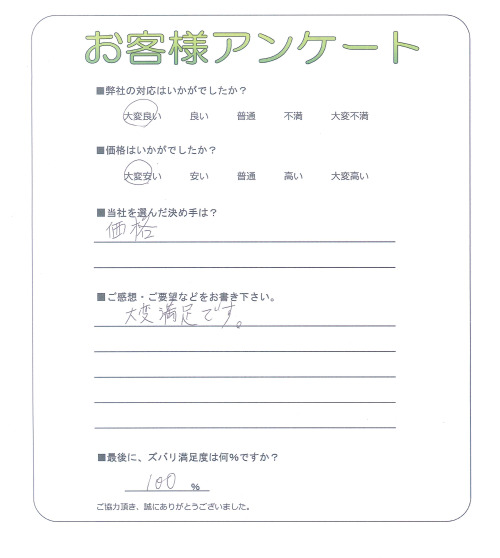 お客様アンケート
■弊社の対応はいかがでしたか？
大変良い 良い 普通 不満 大変不満
■価格はいかがでしたか？
大変安い 安い 普通 高い 大変高い
■当社を選んだ決め手は？
価格
■ご感想・ご要望などをお書き下さい。
大変満足です。
■最後に、ズバリ満足度は何%ですか？
100 %
ご協力頂き、誠にありがとうございました。